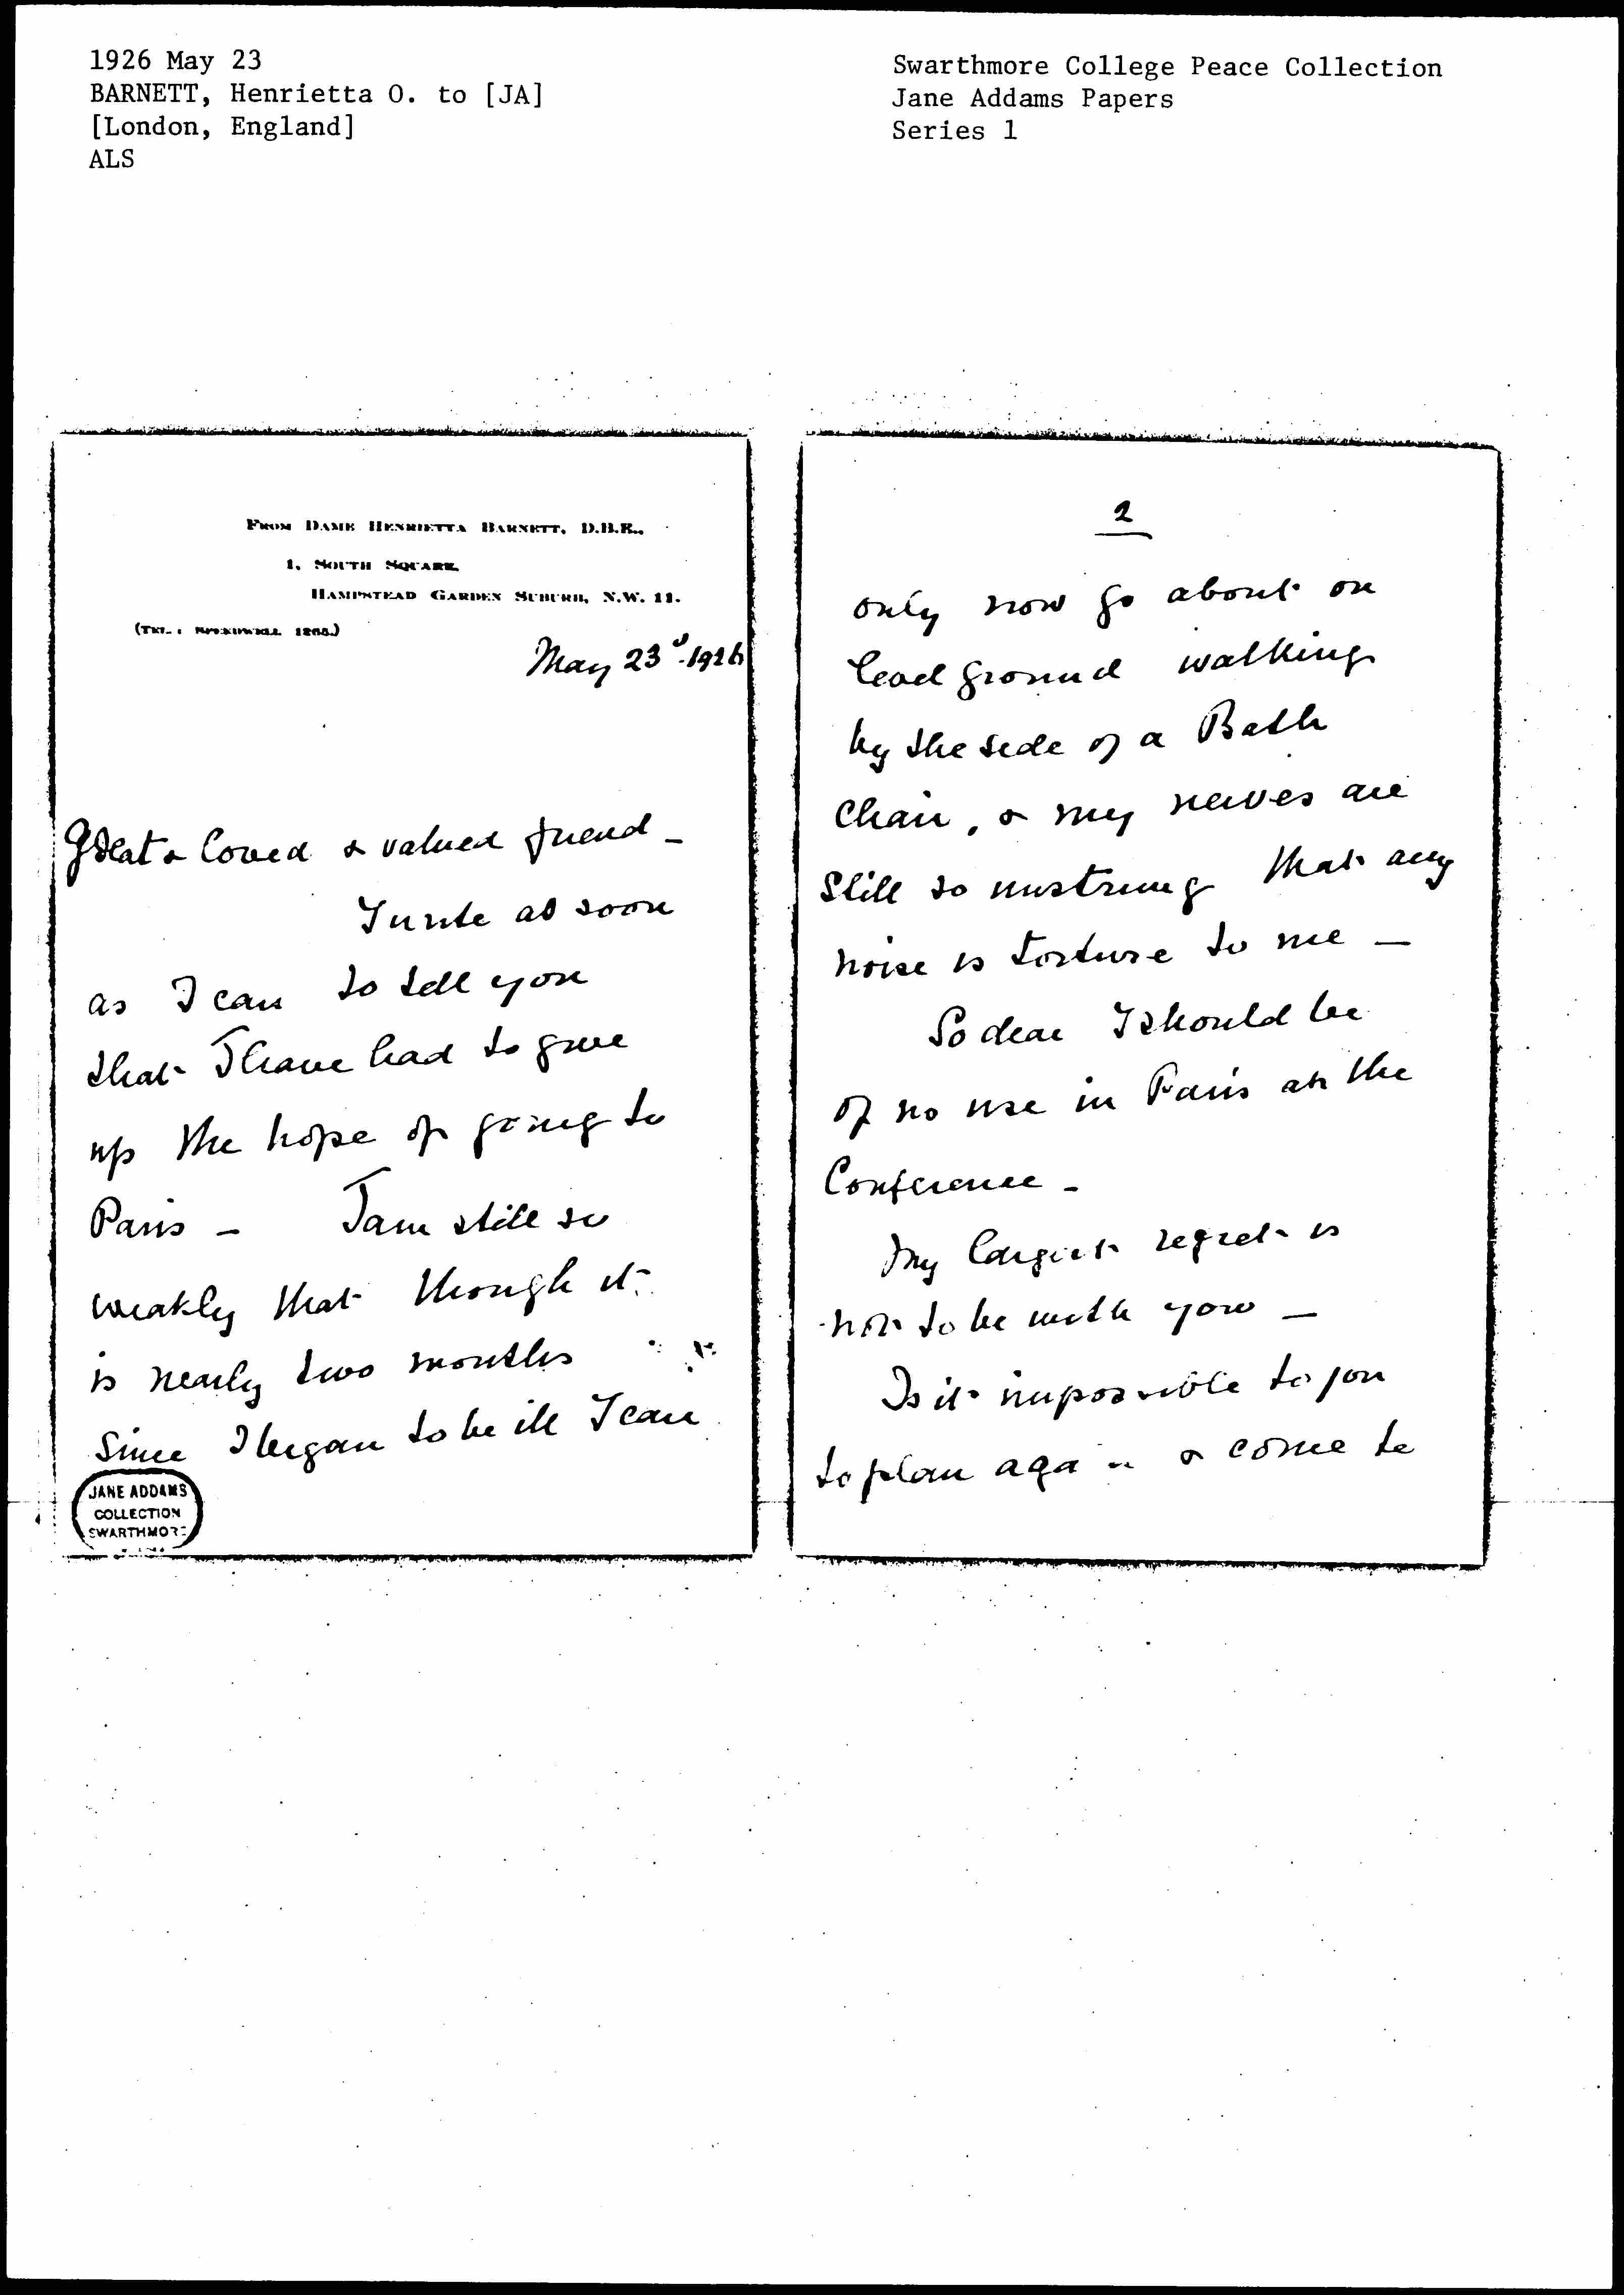 1926 May 23
BARNETT, Henrietta O. to [JA]
[London, England]
ALS
Swarthmore College Peace Collection
Jane Addams Papers
Series 1
FROM DAME HENRIETTA BARNETT, D.B.E.,
1, SOUTH SQUARE,
HAMPSTEAD GARDEN SUBURB, N.W. 11.
(TEL.: SPEEDWELL 1268.)
May 23d. 1926
Great & loved & valued friend –
I write as soon
as I can to tell you
that I have had to give
up the hope of going to
Paris – I am still so
weakly that though it
is nearly two months
since I began to be ill I can
JANE ADDAMS
COLLECTION
SWARTHMORE
2
only now go about on
level ground walking
by the side of a Bath
Chair, & my nerves are
still so unstrung that any
noise is torture to me –
So dear I should be
of no use in Paris at the
Conference –
My largest regret is
not to be with you –
Is it impossible to you
to plan again & come to